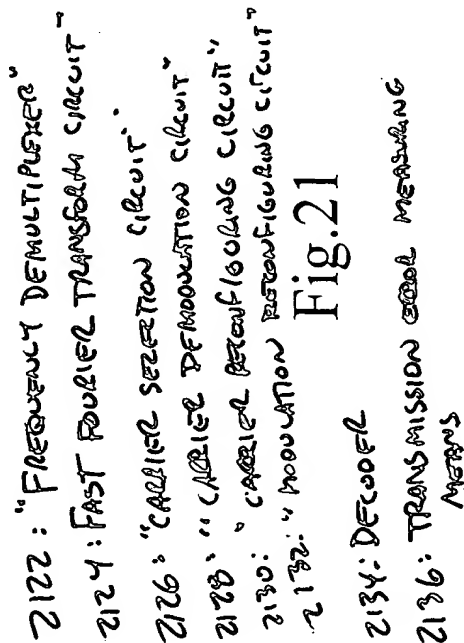 2122: "FREQUENCY DEMULTIPLEXER"
2124: FAST FOURIER TRANSFORM CIRCUIT"
2126: "CARRIER SELECTION CIRCUIT"
2128: "CARRIER DEMODULATION CIRCUIT"
2130: "CARRIER RECONFIGURING CIRCUIT"
2132: "MODULATION RECONFIGURING CIRCUIT"
Fig.21
2134: DECODER
2136: TRANSMISSION ERROR MEASURING
MEANS